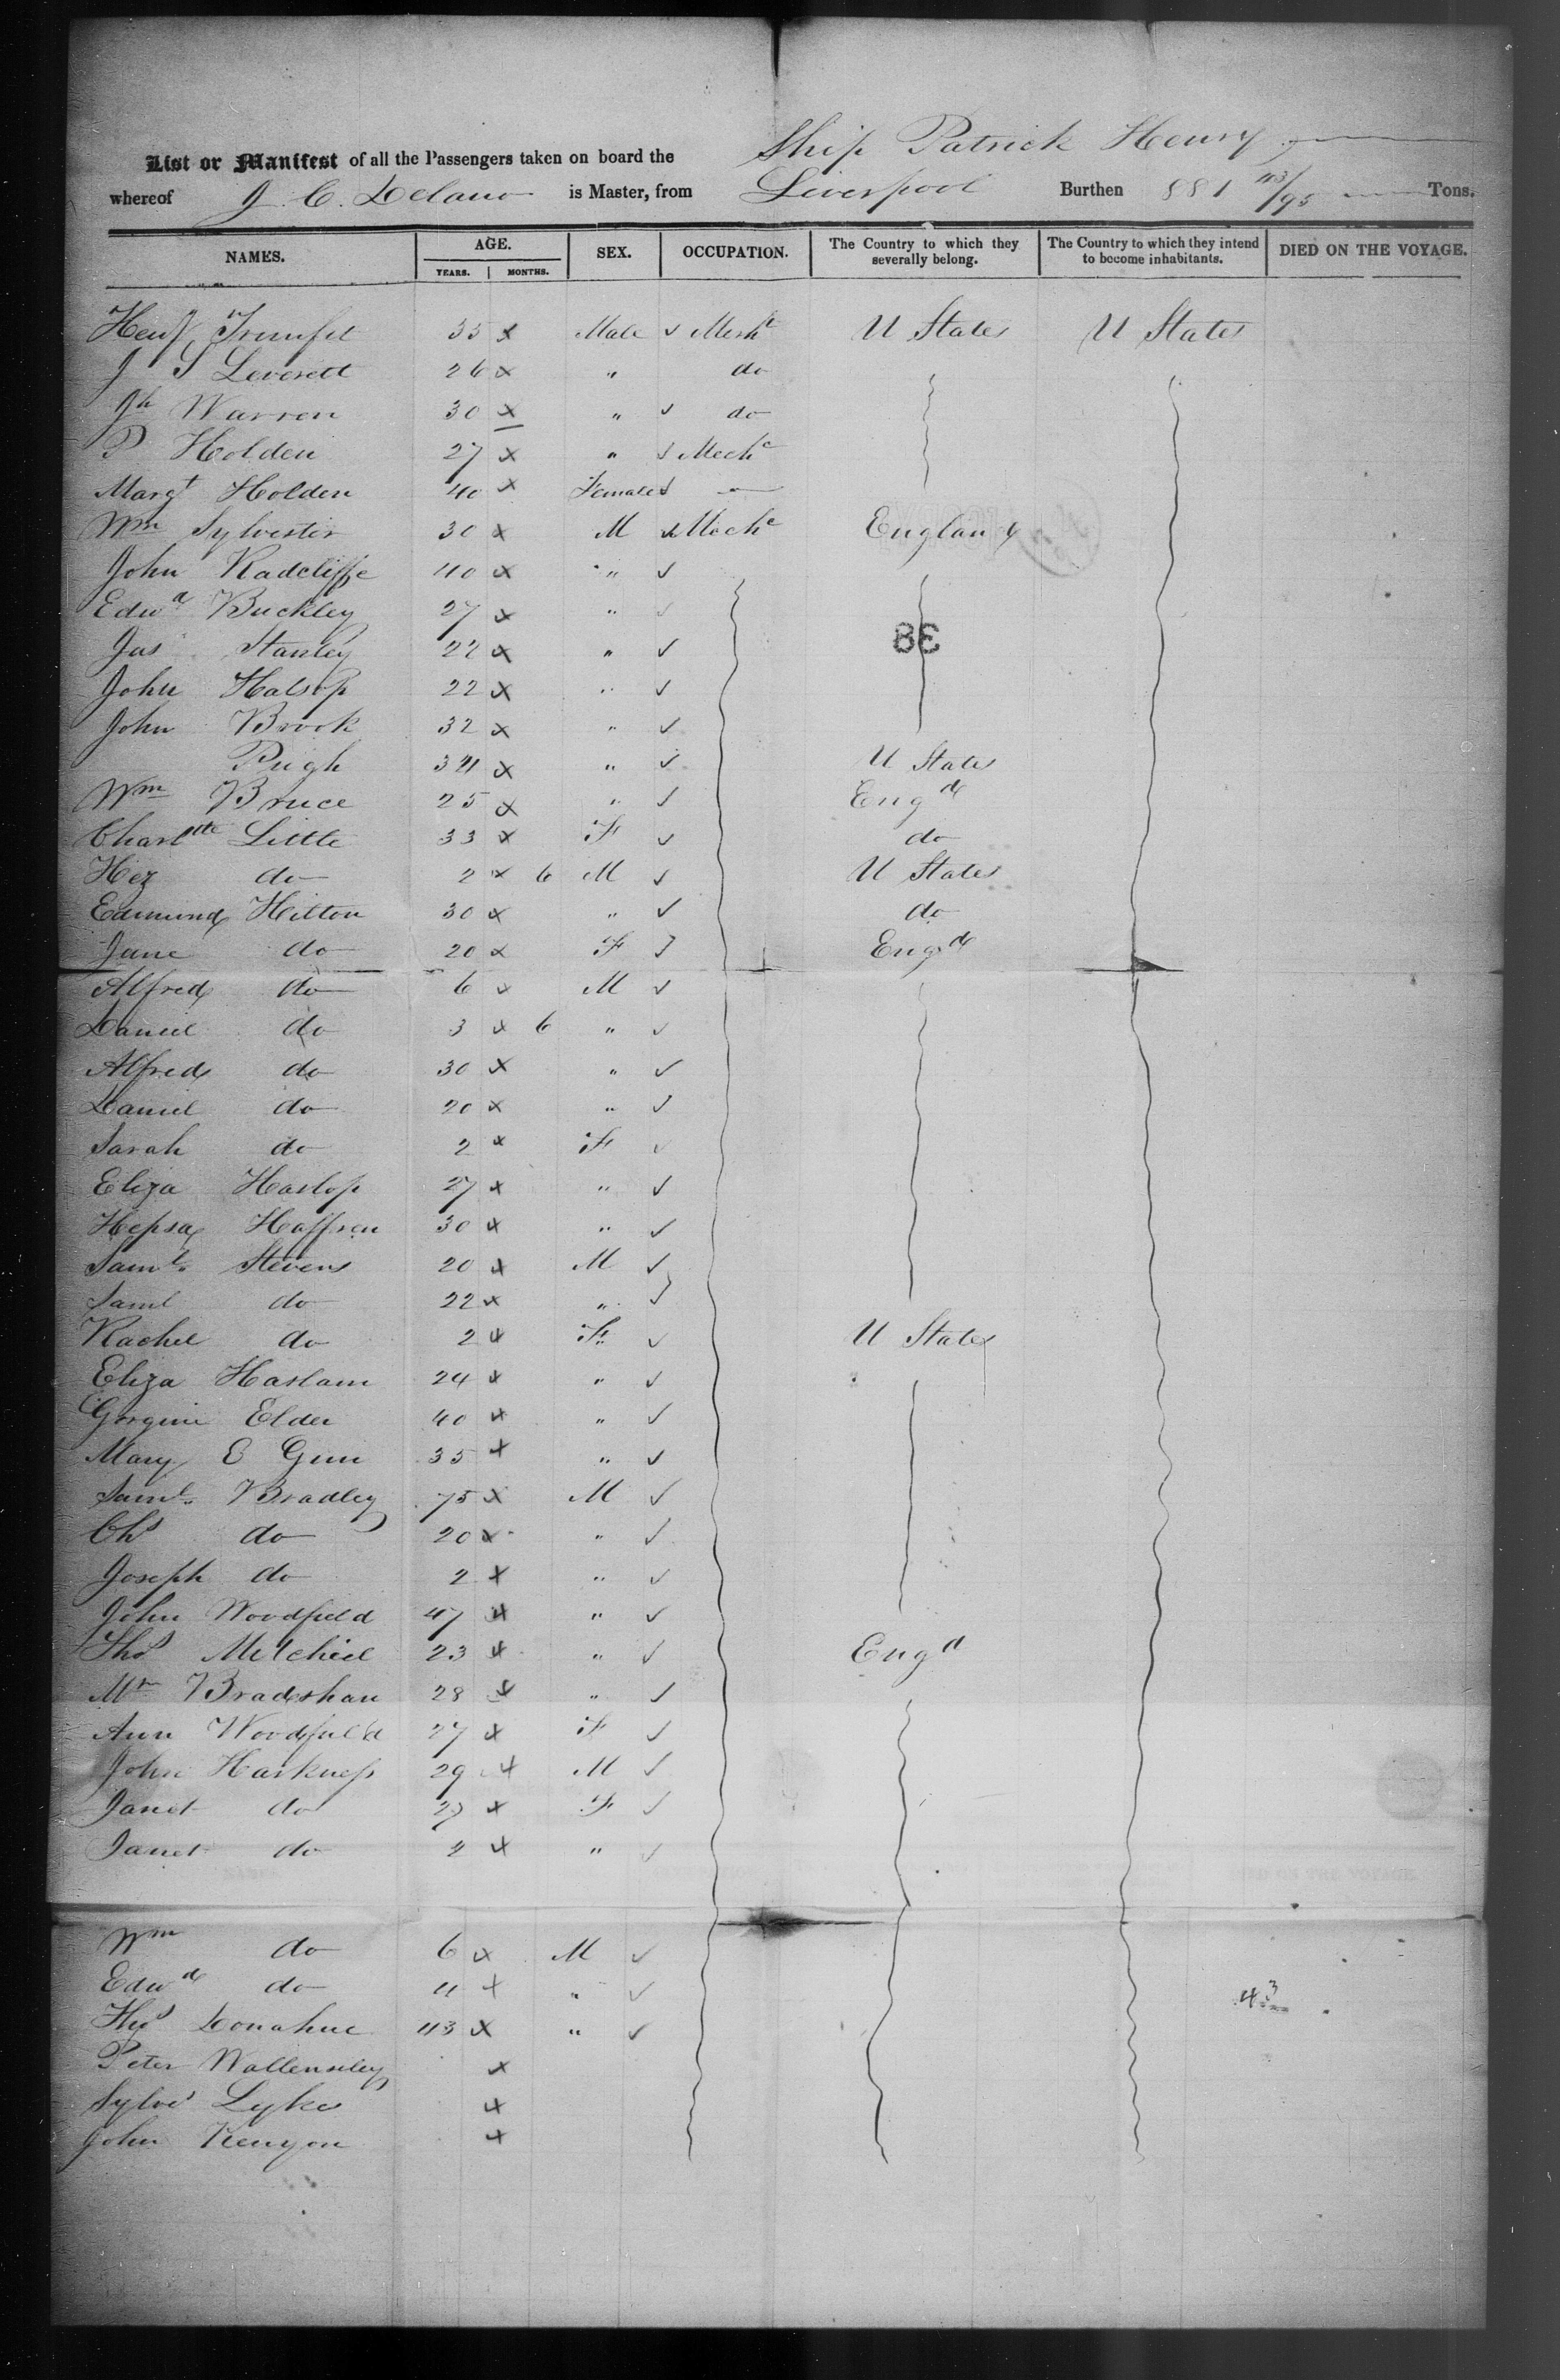 List or Manifest of all the Passengers taken on board the Ship Patrick Henry
whereof J. C. Delano is Master, from Liverpool Burthen 881 43/95 Tons.
NAMES. AGE. YEARS. MONTHS. SEX. OCCUPATION. The Country to which they severally belong. The Country to which they intend to become inhabitants. DIED ON THE VOYAGE.
35 x Male ✓ Mercht U States U States
J S Leverett 26 x " do
Jh Warren 30 x " ✓ do
P Holden 27 x " ✓ Mechc
Margt Holden 40 x Female ✓ —
Wm Sylvester 30 x M ✓ Mechc England
John Radcliffe 40 x " ✓
Edwd Buckley 27 x " ✓
Jas Stanley 22 x " ✓
38
John Halsop 22 x " ✓
John Brook 32 x " ✓
Pugh 34 x " ✓ U States
Wm Bruce 25 x " ✓ Engd
Charltte Little 33 x F ✓ do
Hez do 2 x 6 M ✓ U States
Edmund Hilton 30 x " ✓ do
Jane do 20 x F ✓ Engd
Alfred do 6 x M ✓
Daniel do 3 x 6 " ✓
Alfred do 30 x " ✓
Daniel do 20 x " ✓
Sarah do 2 x F ✓
Eliza Haslop 27 x " ✓
Hepsa Haffren 30 x " ✓
Saml. Stevens 20 x M ✓
Saml do 22 x " ✓
Rachel do 2 x F ✓ U States
Eliza Haslam 24 x " ✓
Elder 40 x " ✓
Mary E Gunn 35 x " ✓
Saml. Bradley 75 x M ✓
Chs do 20 x " ✓
Joseph do 2 x " ✓
John Woodfield 47 x " ✓
Thos Mitchell 23 x " ✓ Engd
Bradshaw 28 x " ✓
Ann Woodfield 27 x F ✓
John Harkness 29 x M ✓
Janet do 27 x F ✓
Janet do 2 x " ✓
Wm do 6 x M ✓
Edwd do 4 x " ✓
43
Thos Donahue 43 x " ✓
Peter x
Lykes x
John Kenyon x